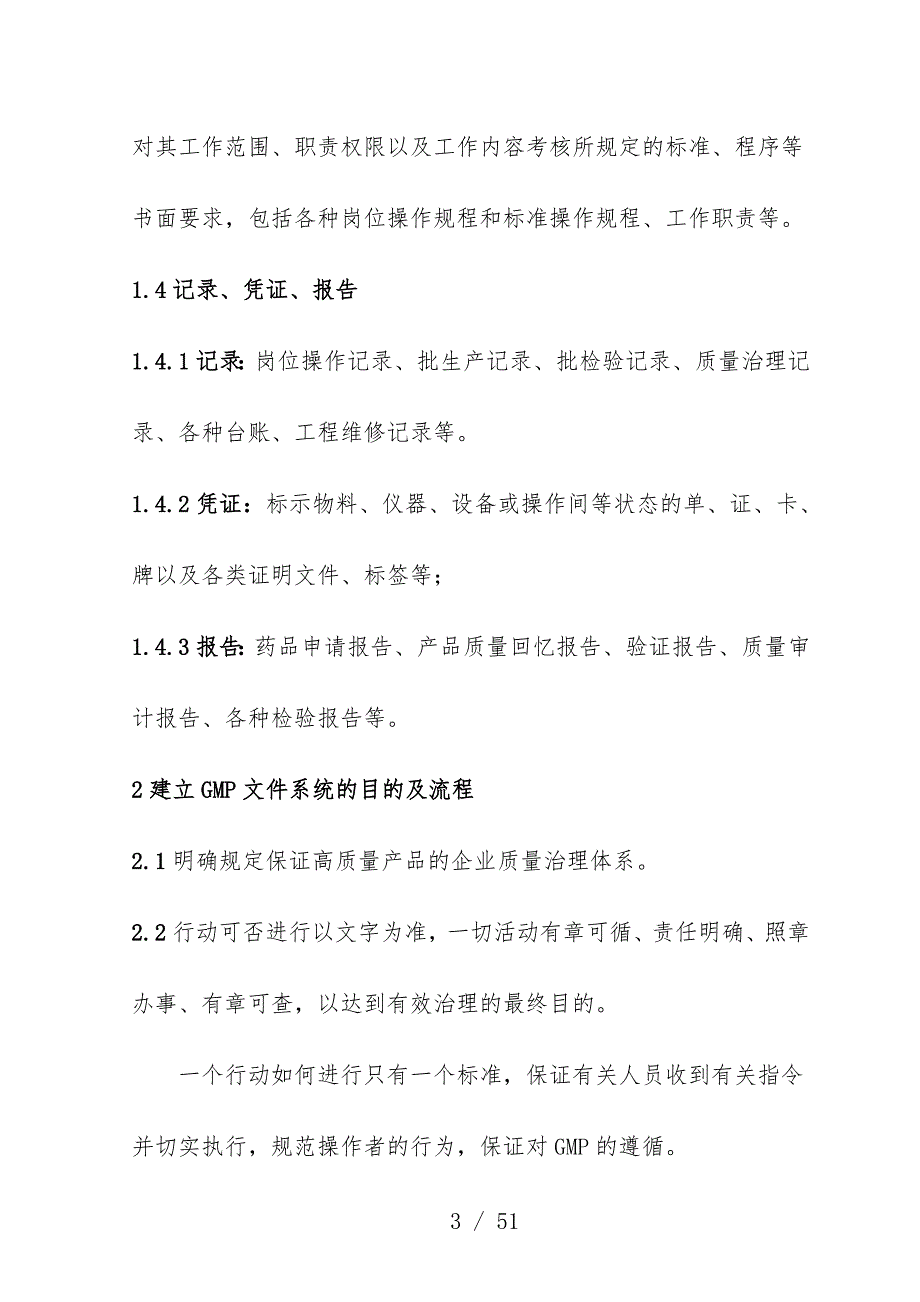 对其工作范围、职责权限以及工作内容考核所规定的标准、程序等
书面要求，包括各种岗位操作规程和标准操作规程、工作职责等。
1.4记录、凭证、报告
1.4.1记录：岗位操作记录、批生产记录、批检验记录、质量治理记
录、各种台账、工程维修记录等。
1.4.2凭证：标示物料、仪器、设备或操作间等状态的单、证、卡、
牌以及各类证明文件、标签等；
1.4.3报告：药品申请报告、产品质量回忆报告、验证报告、质量审
计报告、各种检验报告等。
2建立GMP文件系统的目的及流程
2.1明确规定保证高质量产品的企业质量治理体系。
2.2行动可否进行以文字为准，一切活动有章可循、责任明确、照章
办事、有章可查，以达到有效治理的最终目的。
一个行动如何进行只有一个标准，保证有关人员收到有关指令
并切实执行，规范操作者的行为，保证对GMP的遵循。
3 / 51